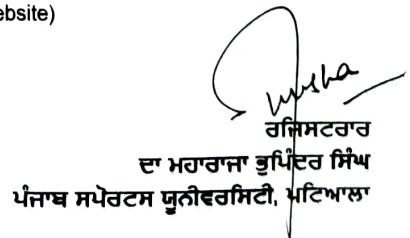 ebsite)
ਰਜਿਸਟਰਾਰ
ਦਾ ਮਹਾਰਾਜਾ ਭੁਪਿੰਦਰ ਸਿੰਘ
ਪੰਜਾਬ ਸਪੋਰਟਸ ਯੂਨੀਵਰਸਿਟੀ, ਪਟਿਆਲਾ